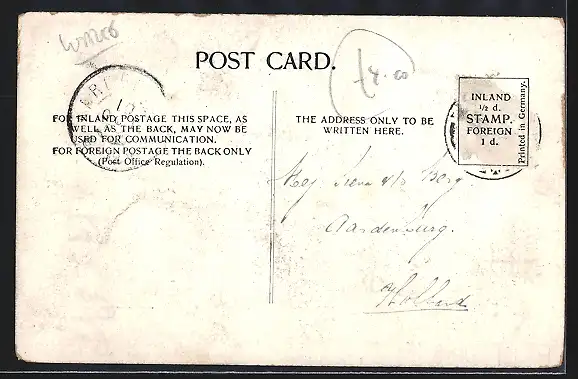 WALES
£4.00
POST CARD.
FOR INLAND POSTAGE THIS SPACE, AS
WELL AS THE BACK, MAY NOW BE
USED FOR COMMUNICATION.
FOR FOREIGN POSTAGE THE BACK ONLY
(Post Office Regulation).
THE ADDRESS ONLY TO BE
WRITTEN HERE.
INLAND
½ d.
STAMP.
FOREIGN
1 d.
Printed in Germany.
Mej. v/d Berg.
Aardenburg.
Holland